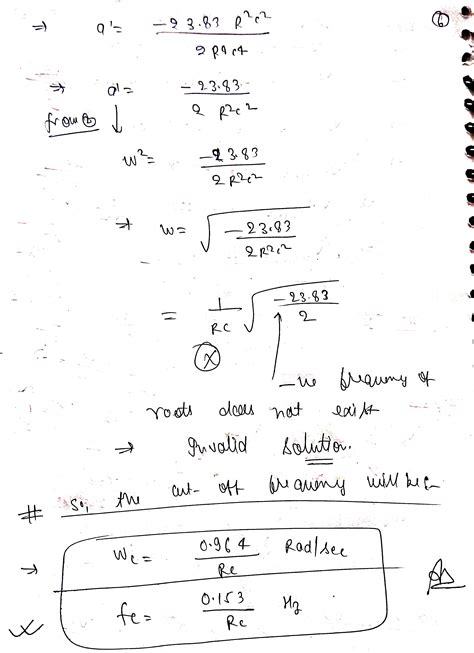 6
⇒ a' = -23.83 R²c² / 2R⁴c⁴
⇒ a' = -23.83 / 2 R²c²
from ②
w² = -23.83 / 2R²c²
⇒ w = √(-23.83 / 2R²c²)
= 1/RC √(-23.83 / 2)
X
-ve frequency of
roots does not exist
⇒ Invalid solution.
# So, the cut-off frequency will be:-
⇒ Wc = 0.964 / Rc Rad/sec
fc = 0.153 / Rc Hz